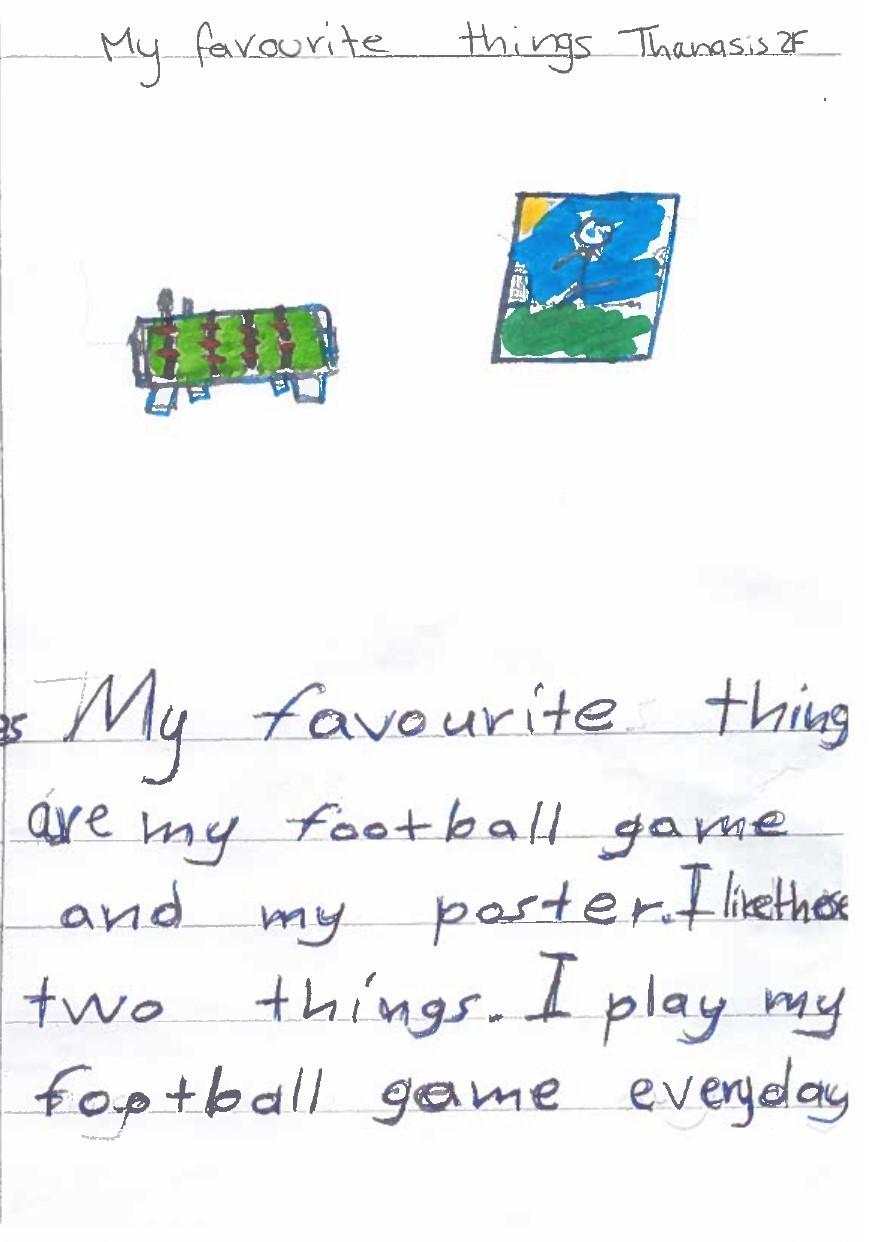 My favourite things Thanasis 2F
My favourite thing
are my football game
and my poster. I like those
two things. I play my
football game everyday